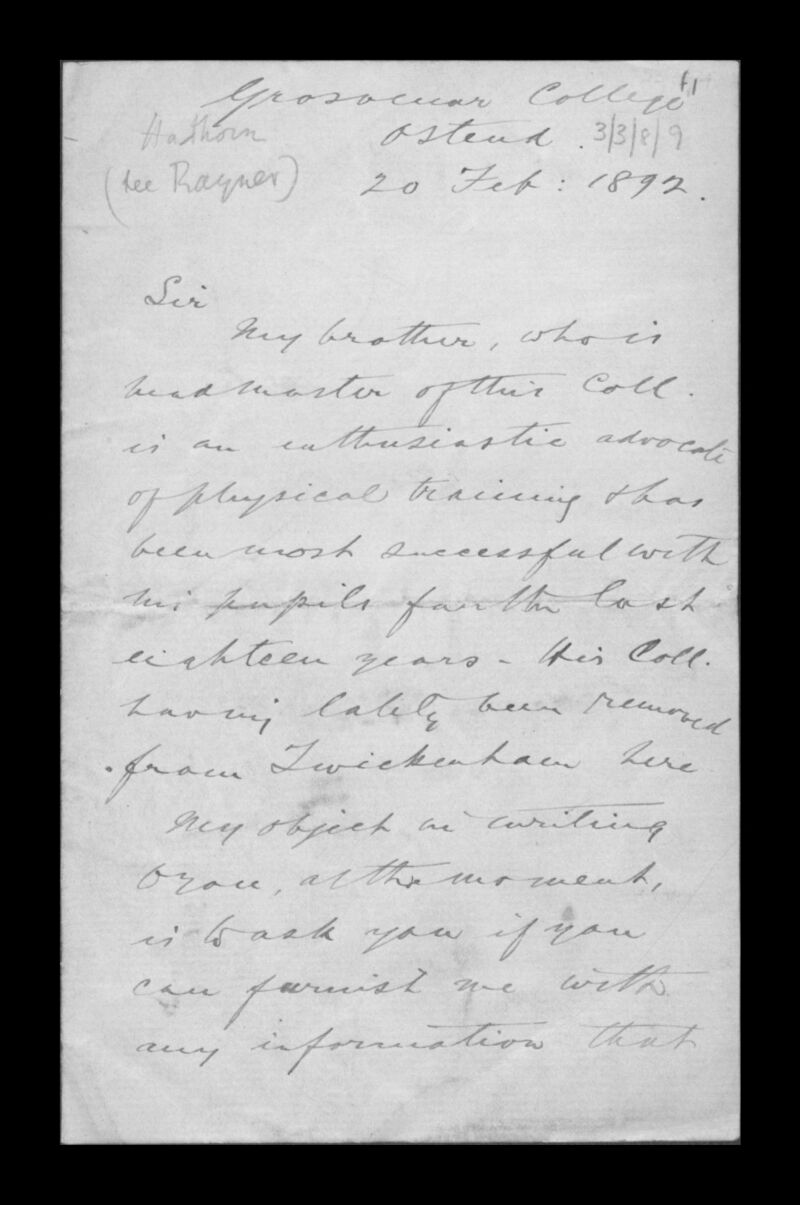 f1
Grosvenor College
Hadhorn
Ostend. 3/3/8/9
(see Rayner)
20 Feb: 1892.
Sir
My brother, who is
head master of this Coll.
is an enthusiastic advocate
of physical training & has
been most successful with
his pupils for the last
eighteen years - His Coll.
having lately been removed
from Twickenham here
My object in writing
to you, at the moment,
is to ask you if you
can furnish me with
any information that